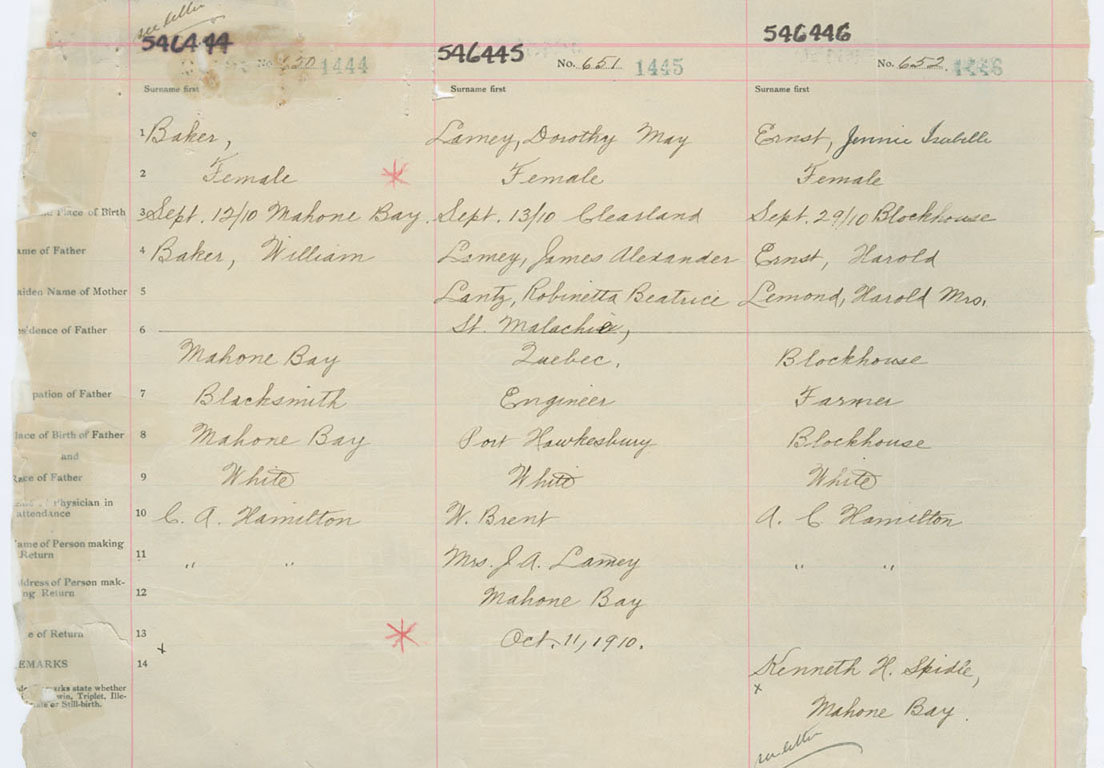 see letter
546444 546445 546446
No. 650 1444 No. 651 1445 No. 652. 1446
Surname first Surname first Surname first
1 Baker, Lamey, Dorothy May Ernst, Jennie Isabelle
2 Female * Female Female
Place of Birth 3 Sept. 12/10 Mahone Bay. Sept. 13/10 Clearland Sept. 29/10 Blockhouse
ame of Father 4 Baker, William Lamey, James Alexander Ernst, Harold
aiden Name of Mother 5 Lantz, Robinetta Beatrice Lemond, Harold Mrs.
sidence of Father 6 St. Malachie,
Mahone Bay Quebec. Blockhouse
pation of Father 7 Blacksmith Engineer Farmer
lace of Birth of Father 8 Mahone Bay Port Hawkesbury Blockhouse
and
Race of Father 9 White White White
Physician in
attendance 10 C. A. Hamilton W. Brent A. C Hamilton
ame of Person making
Return 11 " " Mrs. J A. Lamey " "
ddress of Person mak-
ng Return 12 Mahone Bay
e of Return 13 * Oct. 11, 1910.
x
EMARKS 14 Kenneth H. Spidle,
x
arks state whether
win, Triplet, Ille-
e or Still-birth.
Mahone Bay.
see letter